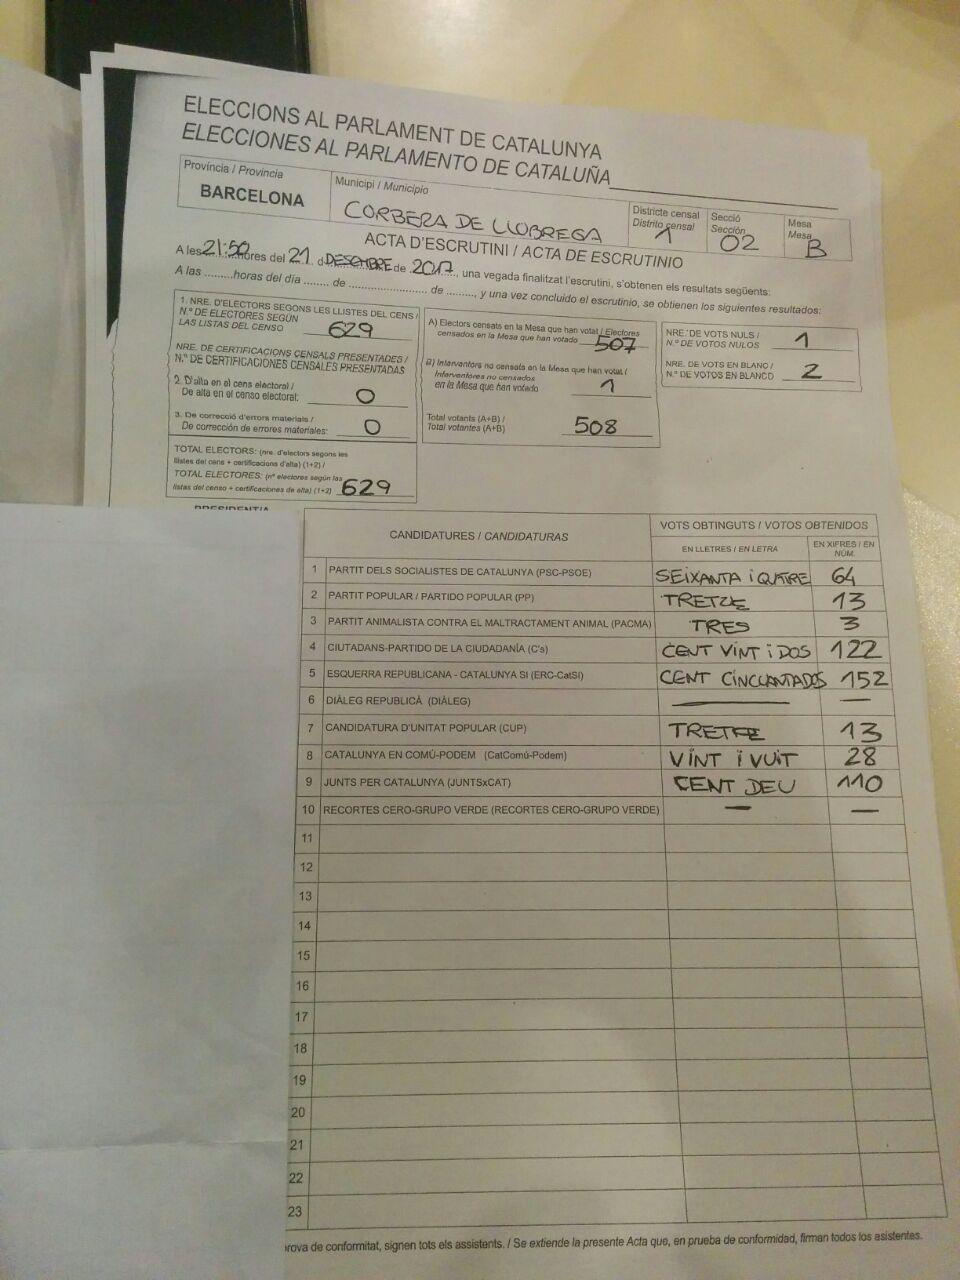 ELECCIONS AL PARLAMENT DE CATALUNYA
ELECCIONES AL PARLAMENTO DE CATALUÑA
Província / Provincia
BARCELONA
Municipi / Municipio
CORBERA DE LLOBREGA
Districte censal
Distrito censal
1
Secció
Sección
02
Mesa
Mesa
B
ACTA D'ESCRUTINI / ACTA DE ESCRUTINIO
A les 21:50 hores del 21 d DESEMBRE de 2017, una vegada finalitzat l'escrutini, s'obtenen els resultats següents:
A las .........horas del día ........ de ........................ de ........., y una vez concluido el escrutinio, se obtienen los siguientes resultados:
1. NRE. D'ELECTORS SEGONS LES LLISTES DEL CENS /
N.º DE ELECTORES SEGÚN
LAS LISTAS DEL CENSO 629
NRE. DE CERTIFICACIONS CENSALS PRESENTADES /
N.º DE CERTIFICACIONES CENSALES PRESENTADAS
2. D'alta en el cens electoral /
De alta en el censo electoral: 0
3. De correcció d'errors materials /
De corrección de errores materiales: 0
TOTAL ELECTORS: (nre. d'electors segons les
llistes del cens + certificacions d'alta) (1+2) /
TOTAL ELECTORES: (nº electores según las
listas del censo + certificaciones de alta) (1+2) 629
A) Electors censats en la Mesa que han votat / Electores
censados en la Mesa que han votado 507
B) Interventors no censats en la Mesa que han votat /
Interventores no censados
en la Mesa que han votado 1
Total votants (A+B) /
Total votantes (A+B) 508
NRE. DE VOTS NULS /
N.º DE VOTOS NULOS 1
NRE. DE VOTS EN BLANC /
N.º DE VOTOS EN BLANCO 2
CANDIDATURES / CANDIDATURAS
VOTS OBTINGUTS / VOTOS OBTENIDOS
EN LLETRES / EN LETRA
EN XIFRES / EN NÚM.
1 PARTIT DELS SOCIALISTES DE CATALUNYA (PSC-PSOE) SEIXANTA i QUATRE 64
2 PARTIT POPULAR / PARTIDO POPULAR (PP) TRETZE 13
3 PARTIT ANIMALISTA CONTRA EL MALTRACTAMENT ANIMAL (PACMA) TRES 3
4 CIUTADANS-PARTIDO DE LA CIUDADANÍA (C's) CENT VINT i DOS 122
5 ESQUERRA REPUBLICANA - CATALUNYA SI (ERC-CatSí) CENT CINCUANTADOS 152
6 DIÀLEG REPUBLICÀ (DIÀLEG) — —
7 CANDIDATURA D'UNITAT POPULAR (CUP) TRETZE 13
8 CATALUNYA EN COMÚ-PODEM (CatComú-Podem) VINT i VUIT 28
9 JUNTS PER CATALUNYA (JUNTSxCAT) CENT DEU 110
10 RECORTES CERO-GRUPO VERDE (RECORTES CERO-GRUPO VERDE) — —
11
12
13
14
15
16
17
18
19
20
21
22
23
prova de conformitat, signen tots els assistents. / Se extiende la presente Acta que, en prueba de conformidad, firman todos los asistentes.